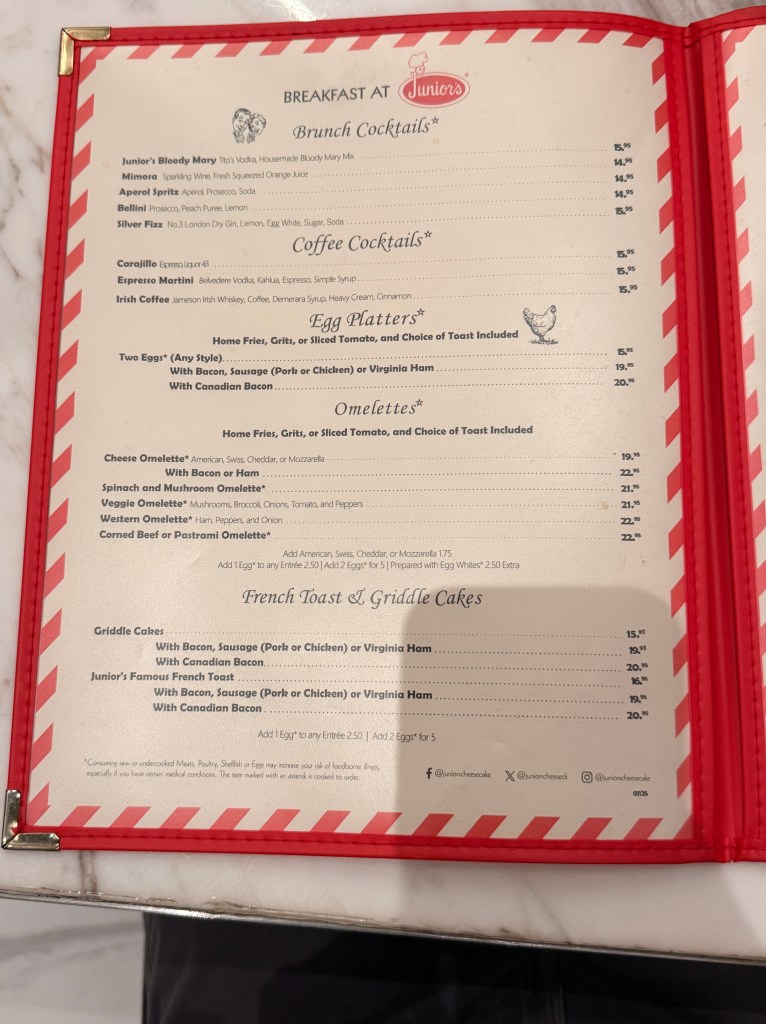 BREAKFAST AT Junior's
Brunch Cocktails☆
Junior's Bloody Mary Tito's Vodka, Housemade Bloody Mary Mix 15.95
Mimosa Sparkling Wine, Fresh Squeezed Orange Juice 14.95
Aperol Spritz Aperol, Prosecco, Soda 14.95
Bellini Prosecco, Peach Puree, Lemon 14.95
Silver Fizz No.3 London Dry Gin, Lemon, Egg White, Sugar, Soda 15.95
Coffee Cocktails☆
Carajillo Espresso, Liquor 43 15.95
Espresso Martini Belvedere Vodka, Kahlua, Espresso, Simple Syrup 15.95
Irish Coffee Jameson Irish Whiskey, Coffee, Demerara Syrup, Heavy Cream, Cinnamon 15.95
Egg Platters☆
Home Fries, Grits, or Sliced Tomato, and Choice of Toast Included
Two Eggs* (Any Style) 15.95
With Bacon, Sausage (Pork or Chicken) or Virginia Ham 19.95
With Canadian Bacon 20.95
Omelettes☆
Home Fries, Grits, or Sliced Tomato, and Choice of Toast Included
Cheese Omelette* American, Swiss, Cheddar, or Mozzarella 19.95
With Bacon or Ham 22.95
Spinach and Mushroom Omelette* 21.95
Veggie Omelette* Mushrooms, Broccoli, Onions, Tomato, and Peppers 21.95
Western Omelette* Ham, Peppers, and Onion 22.95
Corned Beef or Pastrami Omelette* 22.95
Add American, Swiss, Cheddar, or Mozzarella 1.75
Add 1 Egg* to any Entrée 2.50 | Add 2 Eggs* for 5 | Prepared with Egg Whites* 2.50 Extra
French Toast & Griddle Cakes
Griddle Cakes 15.95
With Bacon, Sausage (Pork or Chicken) or Virginia Ham 19.95
With Canadian Bacon 20.95
Junior's Famous French Toast 16.95
With Bacon, Sausage (Pork or Chicken) or Virginia Ham 19.95
With Canadian Bacon 20.95
Add 1 Egg* to any Entrée 2.50 | Add 2 Eggs* for 5
*Consuming raw or undercooked Meats, Poultry, Shellfish or Eggs may increase your risk of foodborne illness,
especially if you have certain medical conditions. The item marked with an asterisk is cooked to order.
@juniorscheesecake @juniorscheeseck @juniorscheesecake
07/25